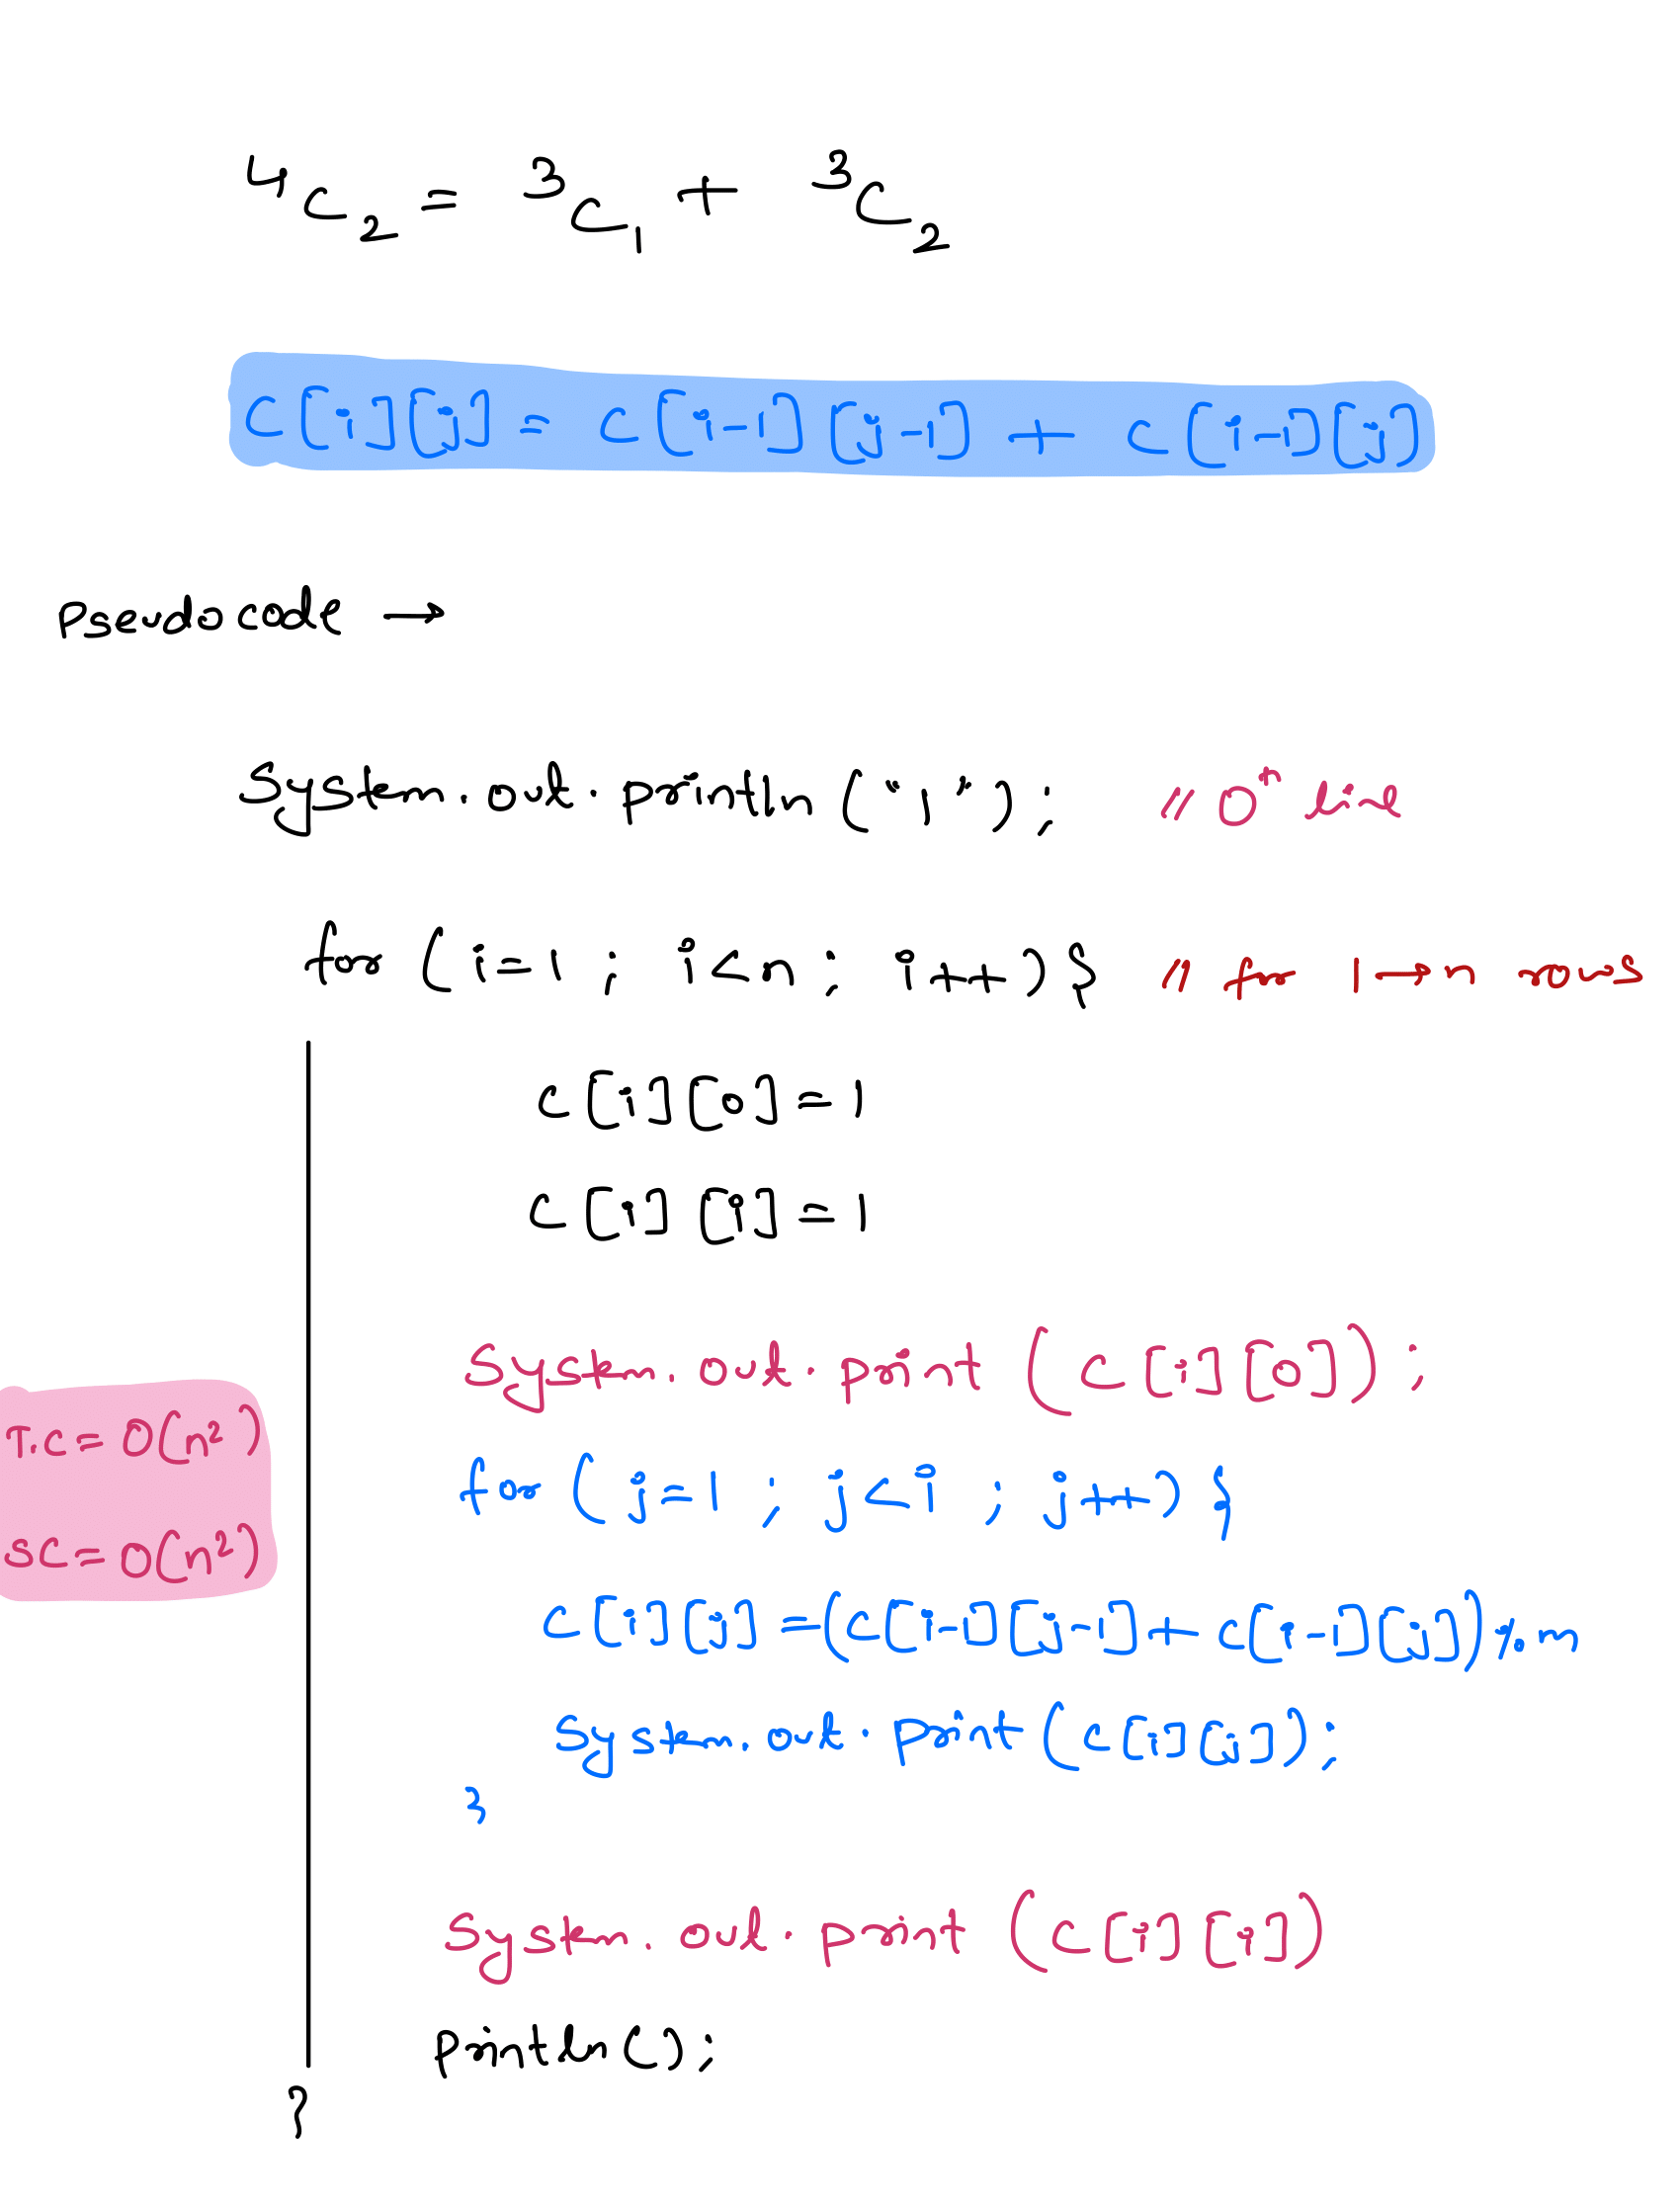 ⁴C₂ = ³C₁ + ³C₂
C[i][j] = C[i-1][j-1] + C[i-1][j]
Pseudocode →
System.out.println("1"); // 0ᵗʰ line
for (i=1 ; i<n ; i++)} // for 1→n rows
C[i][0]=1
C[i][i]=1
System.out.print (C[i][0]);
T.C = O(n²)
for (j=1 ; j<i ; j++) {
SC = O(n²)
C[i][j] =(C[i-1][j-1]+ C[i-1][j])%m
System.out.print(C[i][j]);
}
System.out.print (C[i][i])
println();
}